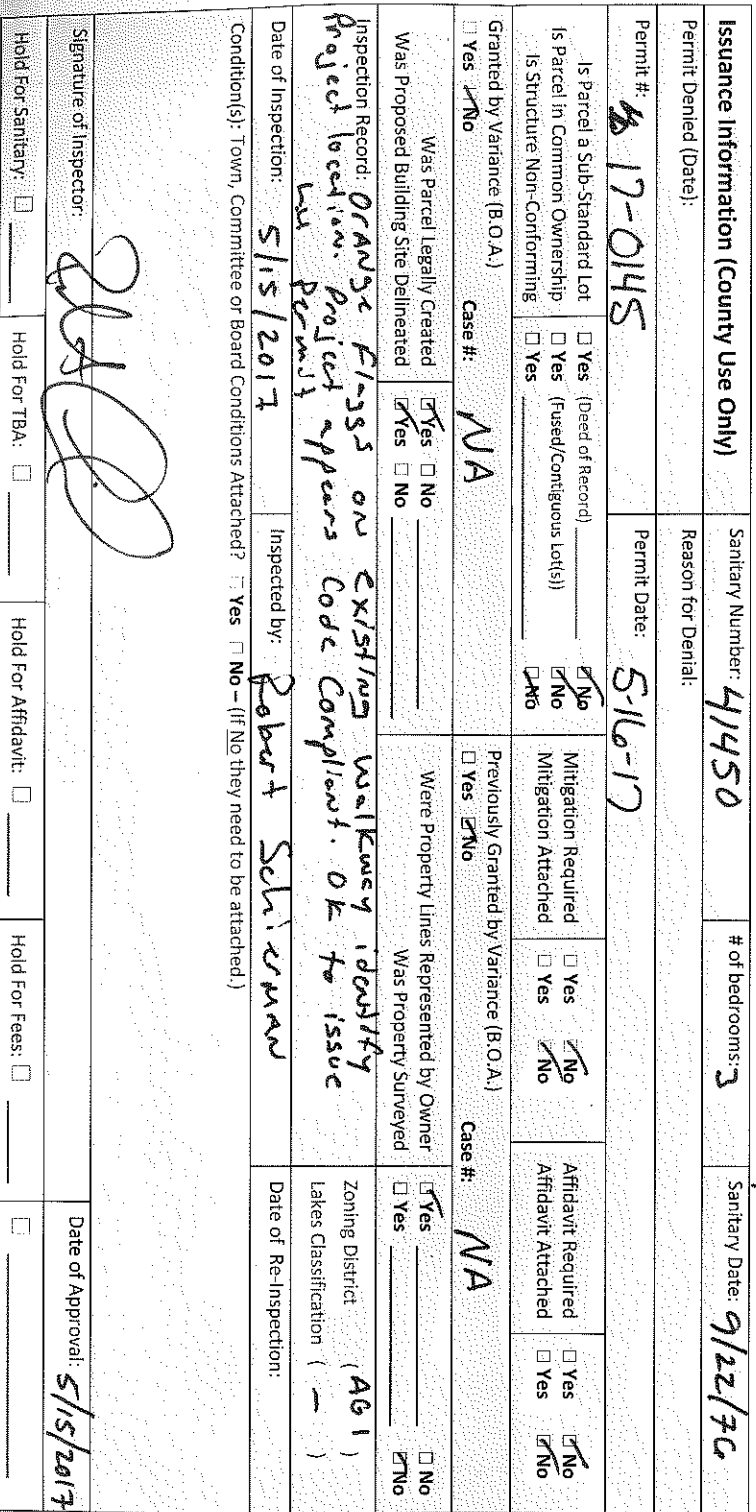 Issuance Information (County Use Only)
Sanitary Number: 41450
# of bedrooms: 3
Sanitary Date: 9/22/76
Permit Denied (Date):
Reason for Denial:
Permit #: 17-0145
Permit Date: 5-16-17
Is Parcel a Sub-Standard Lot ☐ Yes (Deed of Record) ☑ No
Is Parcel in Common Ownership ☐ Yes (Fused/Contiguous Lot(s)) ☑ No
Is Structure Non-Conforming ☐ Yes ☑ No
Mitigation Required ☐ Yes ☑ No
Mitigation Attached ☐ Yes ☑ No
Affidavit Required ☐ Yes ☑ No
Affidavit Attached ☐ Yes ☑ No
Granted by Variance (B.O.A.)
☐ Yes ☑ No Case #: NA
Previously Granted by Variance (B.O.A.)
☐ Yes ☑ No Case #: NA
Was Parcel Legally Created ☑ Yes ☐ No
Was Proposed Building Site Delineated ☑ Yes ☐ No
Were Property Lines Represented by Owner ☑ Yes ☐ No
Was Property Surveyed ☐ Yes ☑ No
Inspection Record: Orange flags on existing walkway identify
Project location. Project appears Code Compliant. OK to issue
Permit
Zoning District (AG1)
Lakes Classification ( — )
Date of Inspection: 5/15/2017
Inspected by: Robert Schierman
Date of Re-Inspection:
Condition(s): Town, Committee or Board Conditions Attached? ☐ Yes ☐ No – (If No they need to be attached.)
Signature of Inspector:
Date of Approval: 5/15/2017
Hold For Sanitary: ☐
Hold For TBA: ☐
Hold For Affidavit: ☐
Hold For Fees: ☐
☐